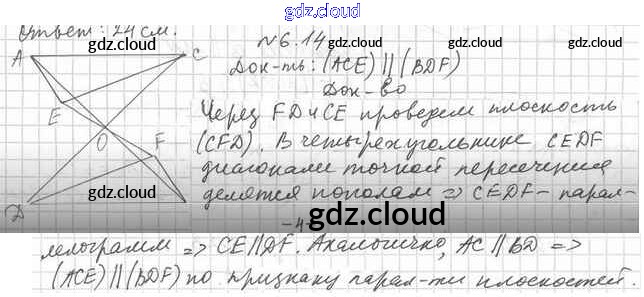 gdz.cloud
Ответ: 24 см.
№6.14
gdz.cloud
gdz.cloud
gdz.cloud
A
C
Док-ть: (ACE) || (BDF)
Док-во
E
Через FD и CE проведем плоскость
O
F
(CFD). В четырехугольнике CEDF
диагонали точкой пересечения
D
gdz.cloud
gdz.cloud
делятся пополам => CEDF - парал-
-4-
gdz.cloud
лелограмм => CE || DF. Аналогично, AC || BD =>
(ACE) || (BDF) по признаку парал-ти плоскостей.